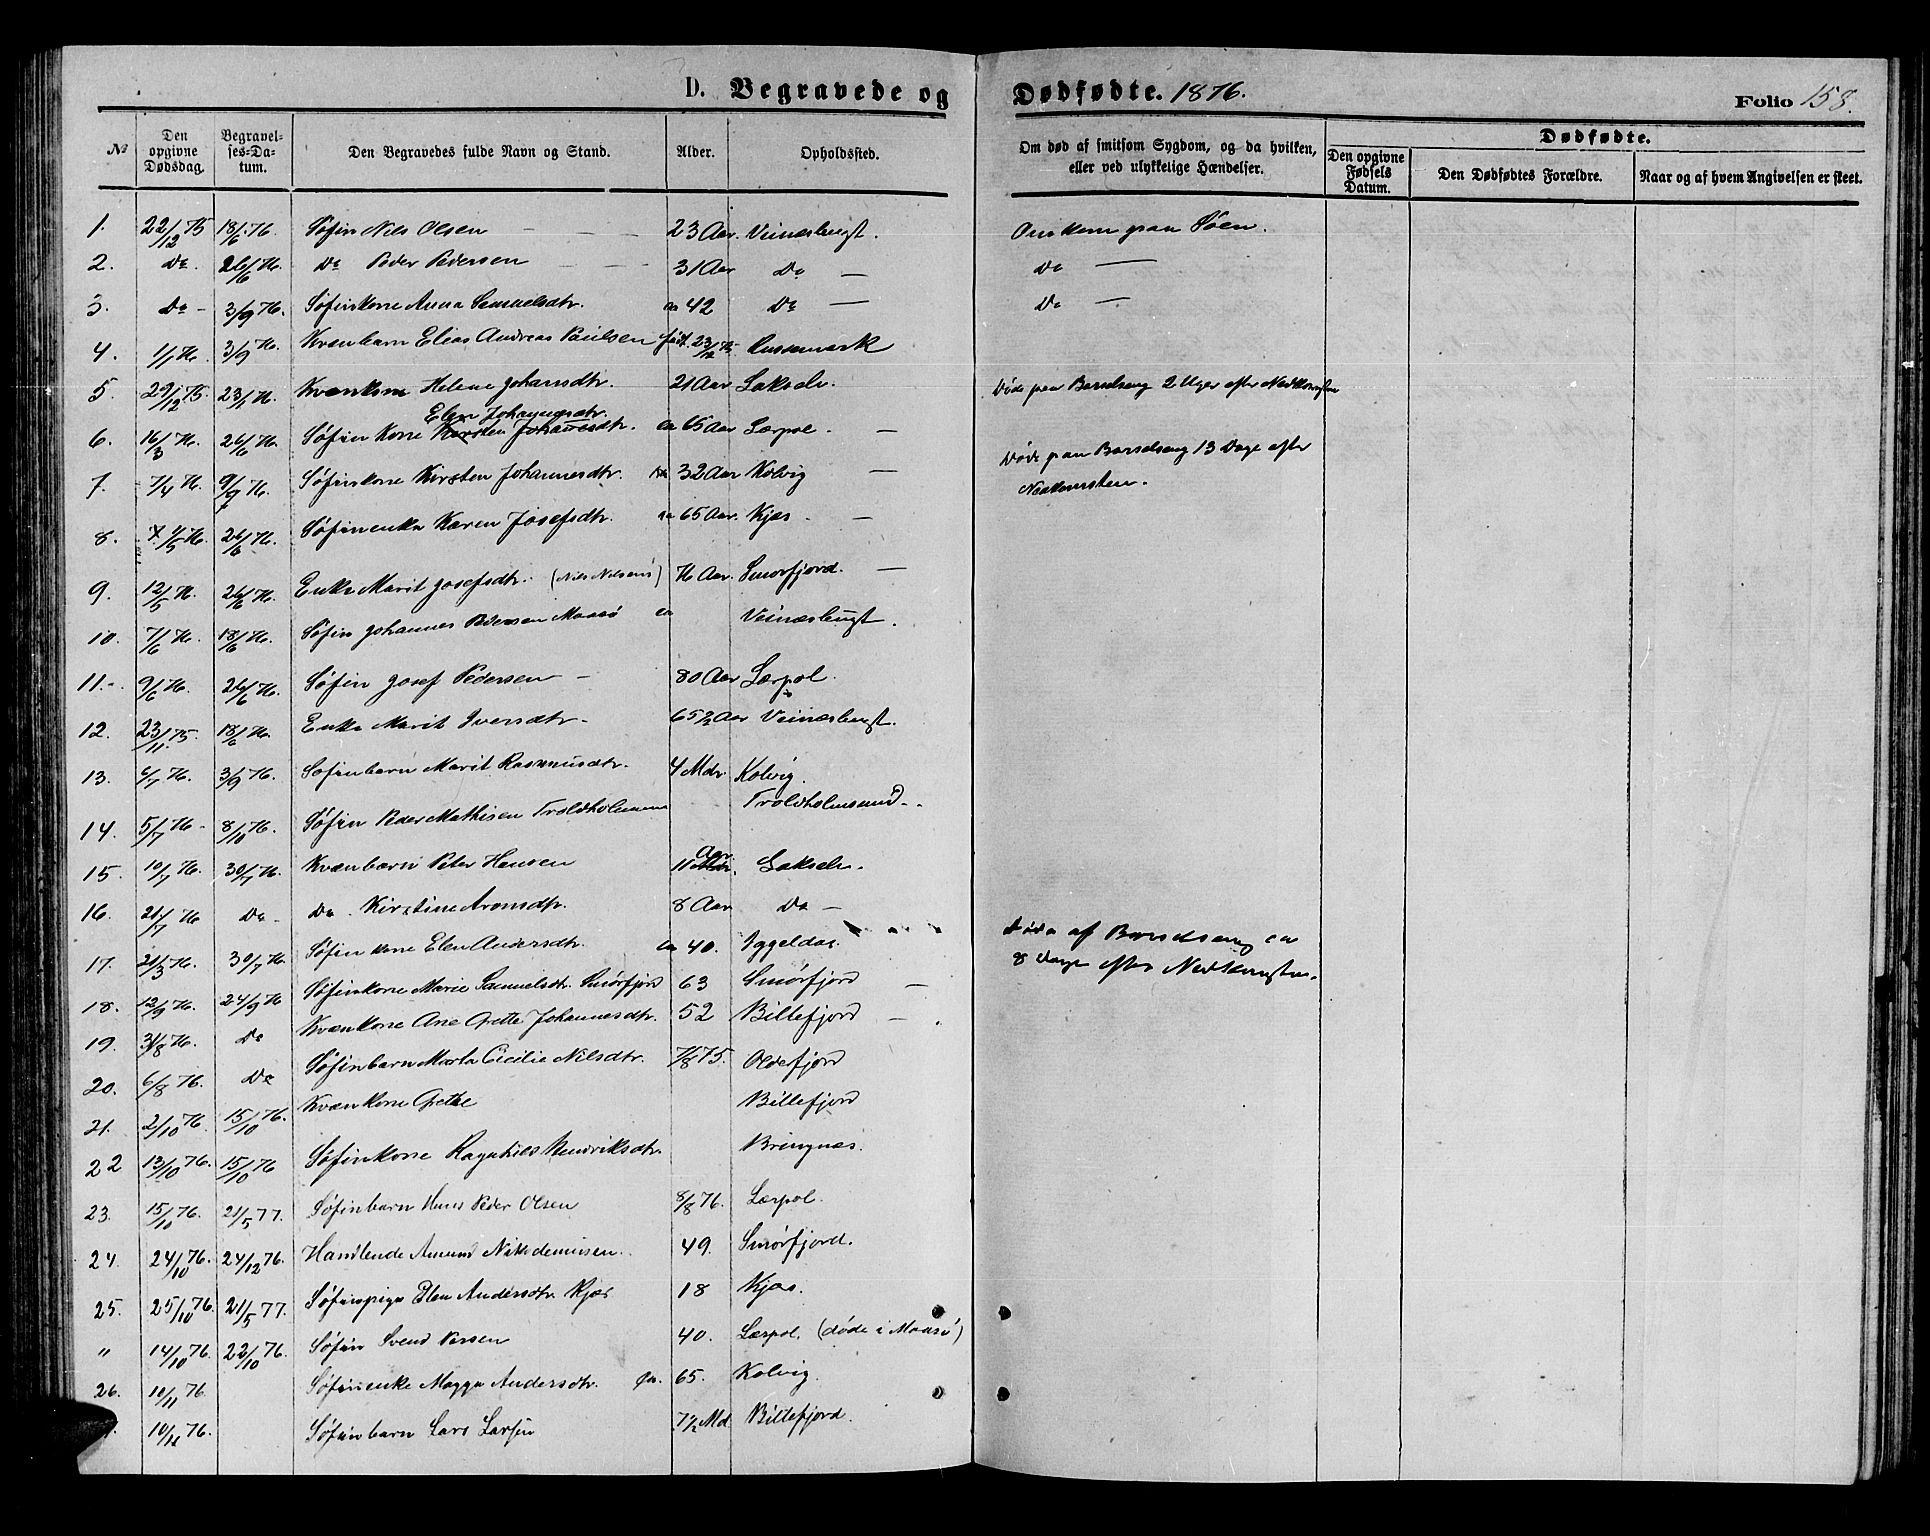 D. Begravede og Dødfødte. 1876. Folio 158.
№ Den opgivne Dødsdag. Begravelses-Datum. Den Begravedes fulde Navn og Stand. Alder. Opholdssted. Om død af smitsom Sygdom, og da hvilken, eller ved ulykkelige Hændelser. Dødfødte. Den opgivne Fødsels Datum. Den Dødfødtes Forældre. Naar og af hvem Angivelsen er skeet.
1. 22/12 75 18/6 76. Søfin Nils Olsen 23 Aar. Veinæsbugt. Omkom paa Søen.
2. Do. 26/6 76. Do Peder Pedersen 31 Aar Do — Do —
3. Do - 3/9 76. Søfinkone Anna Samuelsdtr. ca 42 Do — Do —
4. 1/1 76. 3/9 76. Kvænbarn Elias Andreas Paulsen født 23/12 75 Russemark
5. 29/12 75. 23/1 76. Kvænkone Helene Johansdtr. 21 Aar Lakselv. Døde paa Barselseng 2 Uger efter Nedkomsten
Elen Johannesdtr.
6. 16/3 76. 26/6 76. Søfin Kone Kirsten Johannesdtr. ca 65 Aar Lærpol. —
7. 7/4 76. 9/9 76. Søfinkone Kirsten Johannesdtr. ca 32 Aar Kolvig — Døde paa Barselseng 13 Dage efter Nedkomsten.
8. 4/5 76. 26/6 76. Søfinenke Karen Josefsdtr. ca 65 Aar. Kjæs. —
9. 12/5 76. 26/6 76. Enke Marit Josefsdtr. (Nils Nilsens) 76 Aar. Smørfjord. —
10. 7/6 76. 18/6 76. Søfin Johannes Pedersen Maasø ca Veinæsbugt.
11. 9/6 76. 26/6 76. Søfin Josef Pedersen - 80 Aar Lærpol.
12. 23/11 75. 18/6 76. Enke Marit Iversdtr. 65 1/2 Aar Veinæsbugt.
13. 6/7 76. 3/9 76. Søfinbarn Marit Rasmusdtr. 4 Mdr. Kolvig.
14. 5/7 76. 8/10 76. Søfin Peder Mathisen Troldholmsund Troldholmsund.
15. 10/7 76. 30/7 76. Kvænbarn Peter Hansen 11 Aar Lakselv.
16. 21/7 76 Do - Do. Kirstine Aronsdtr. 8 Aar Do —
17. 21/3 76. 30/7 76. Søfin kone Elen Andersdtr. ca 40. Iggeldas. Døde af Barselseng ca 8 Dage efter Nedkomsten.
18. 12/9 76. 24/9 76 Søfinkone Marie Samuelsdtr. Smørfjord 63 Smørfjord —
19. 31/8 76. Do Kvænkone Ane Grette Johannesdtr. 52 Billefjord —
20. 6/8 76. Do Søfinbarn Marta Cecilie Nilsdtr. 7/8 75. Oldefjord
21. 2/10 76. 15/10 76. Kvænkone Grethe Billefjord
22 13/10 76. 15/10 76 Søfinkone Ragnhild Henriksdtr. Bringnæs.
23. 15/10 76. 21/5 77. Søfinbarn Hans Peder Olsen 8/8 76. Lærpol.
24. 24/10 76. 24/12 76. Handlende Amund Nikodemusen. 49. Smørfjord.
25. 25/10 76. 21/5 77. Søfinpige Elen Andersdtr. Kjæs 18 Kjæs.
" 14/10 76. 22/10 76. Søfin Svend Persen 40. Lærpol. (døde i Maasø)
26. 10/11 76. Søfinenke Magga Andersdtr. ca. 65. Kolvig.
10/11 76. Søfinbarn Lars Larsen 7 1/2 Md Billefjord.